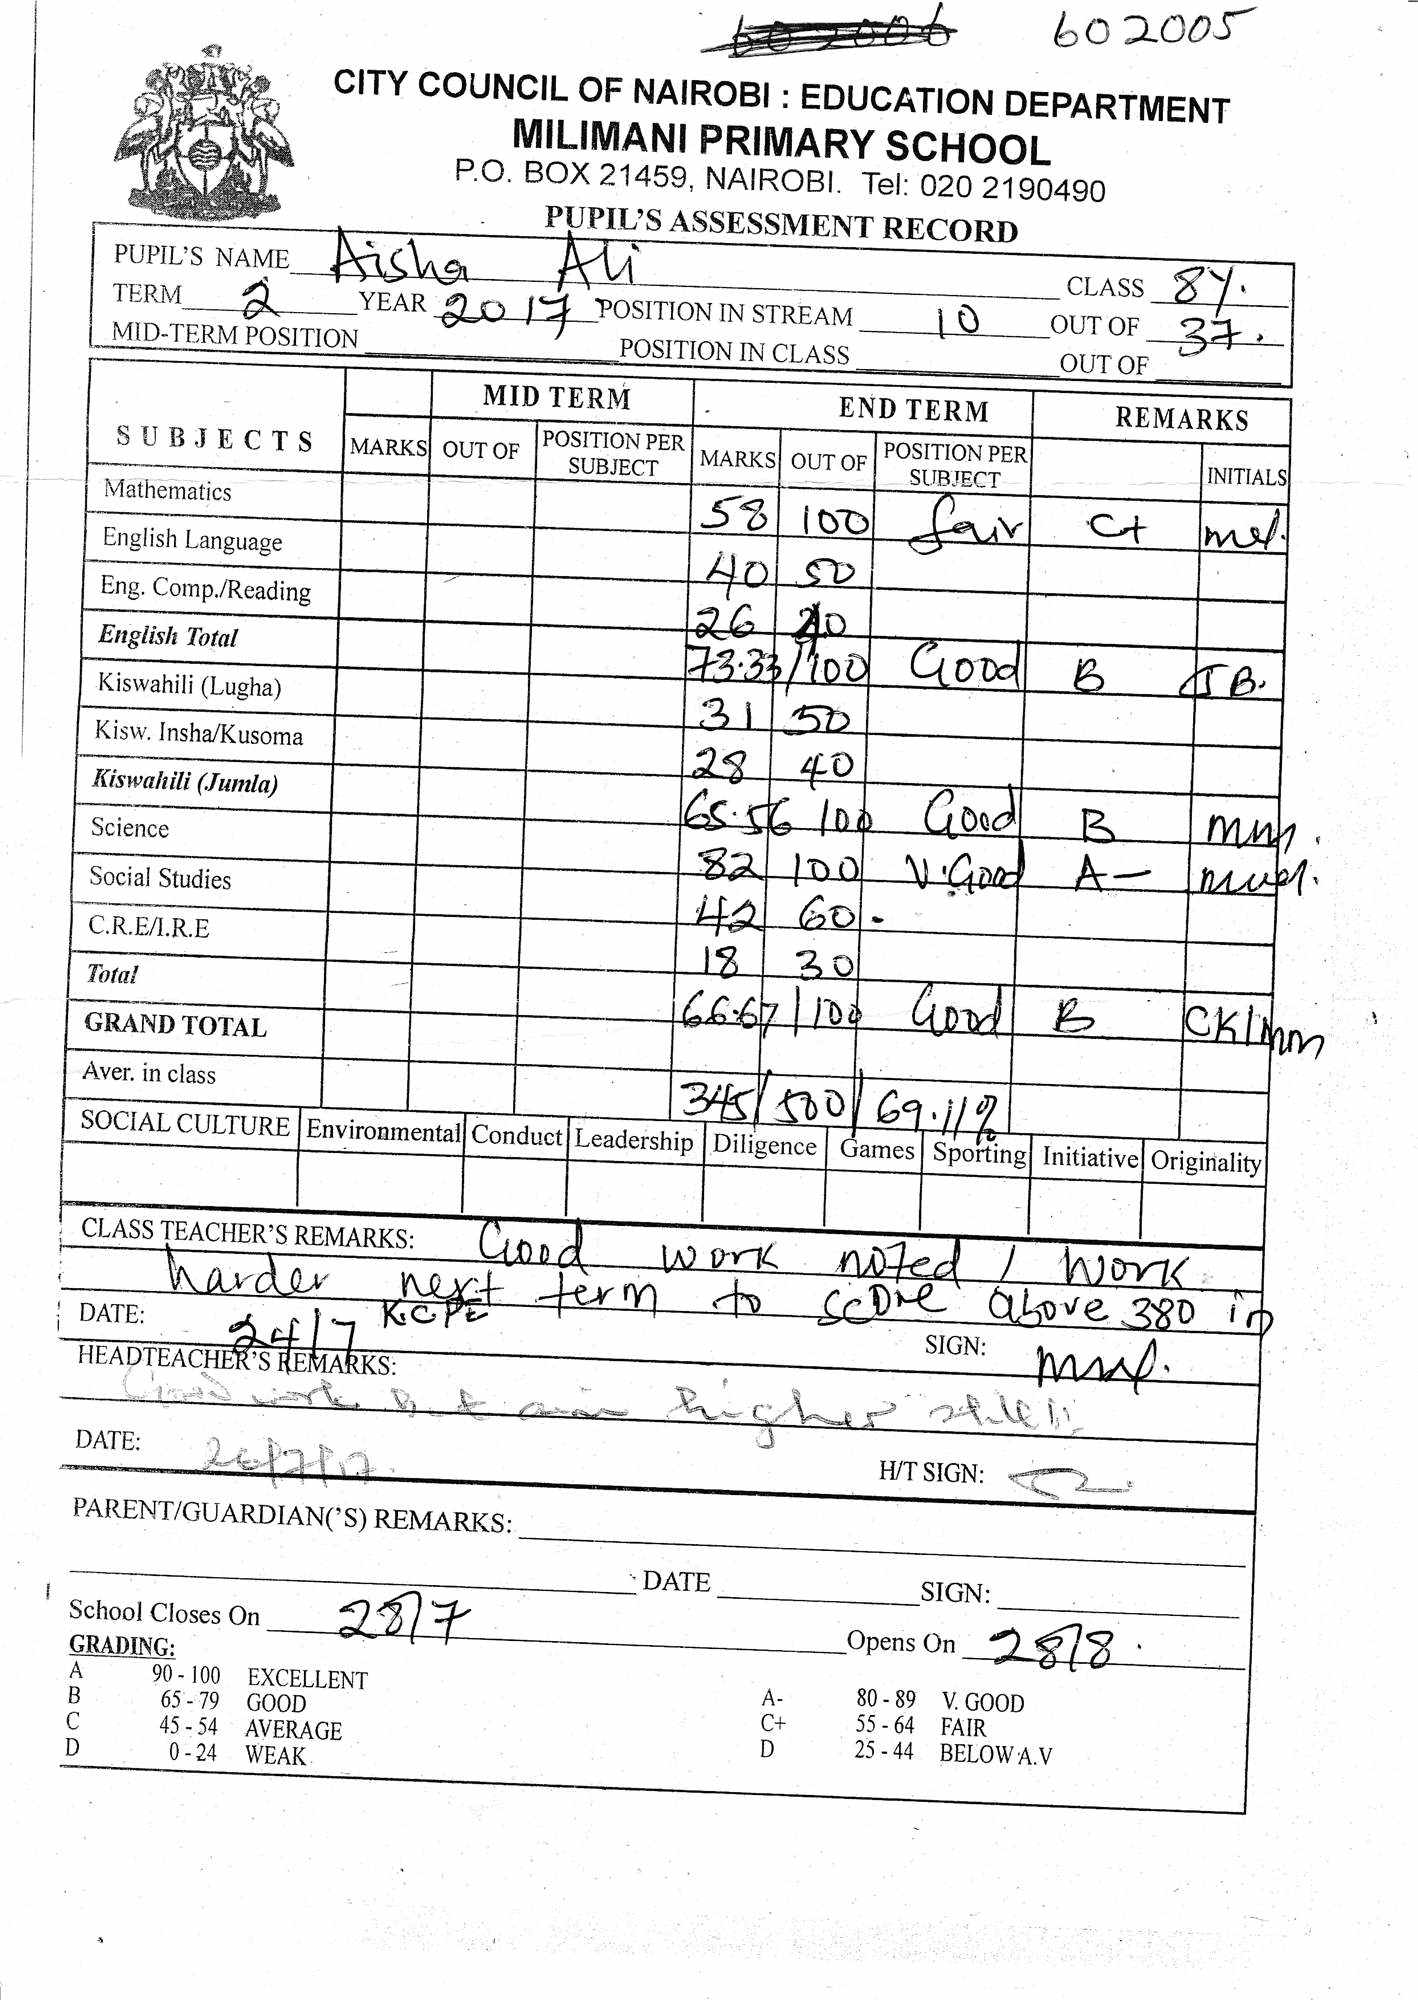 602005
CITY COUNCIL OF NAIROBI : EDUCATION DEPARTMENT
MILIMANI PRIMARY SCHOOL
P.O. BOX 21459, NAIROBI. Tel: 020 2190490
PUPIL'S ASSESSMENT RECORD
PUPIL'S NAME Aisha Ali CLASS 8Y.
TERM 2 YEAR 2017 POSITION IN STREAM 10 OUT OF 37.
MID-TERM POSITION POSITION IN CLASS OUT OF
SUBJECTS MID TERM END TERM REMARKS
MARKS OUT OF POSITION PER SUBJECT MARKS OUT OF POSITION PER SUBJECT INITIALS
Mathematics 58 100 fair C+
English Language 40 50
Eng. Comp./Reading 26 40
English Total 73.33/100 Good B JB.
Kiswahili (Lugha) 31 50
Kisw. Insha/Kusoma 28 40
Kiswahili (Jumla) 65.56 100 Good B
Science 82 100 V.Good A-
Social Studies 42 60
C.R.E/I.R.E 18 30
Total 66.67/100 Good B CK/mm
GRAND TOTAL
Aver. in class 345/500/69.11%
SOCIAL CULTURE Environmental Conduct Leadership Diligence Games Sporting Initiative Originality
CLASS TEACHER'S REMARKS: Good work noted / Work
harder next term to score above 380 in
K.C.P.E
DATE: 24/7 SIGN:
HEADTEACHER'S REMARKS:
Good work but aim higher still!!
DATE: 26/7/17. H/T SIGN:
PARENT/GUARDIAN('S) REMARKS:
DATE SIGN:
School Closes On 28/7 Opens On 28/8.
GRADING:
A 90 - 100 EXCELLENT
B 65 - 79 GOOD A- 80 - 89 V. GOOD
C 45 - 54 AVERAGE C+ 55 - 64 FAIR
D 0 - 24 WEAK D 25 - 44 BELOW A.V